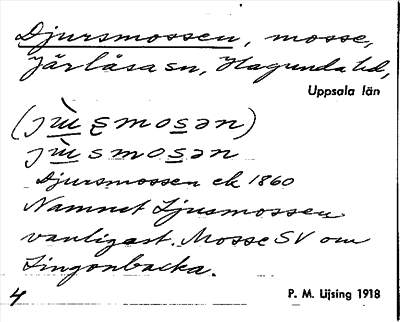 Djursmossen, mosse,
Järlåsa sn, Hagunda hd,
Uppsala län
(jɯ̀ʂmosən)
jɯ̀smosən
Djursmossen ek 1860
Namnet Ljusmossen
vanligast. Mosse SV om
Lingonbacka.
4
P. M. Lijsing 1918